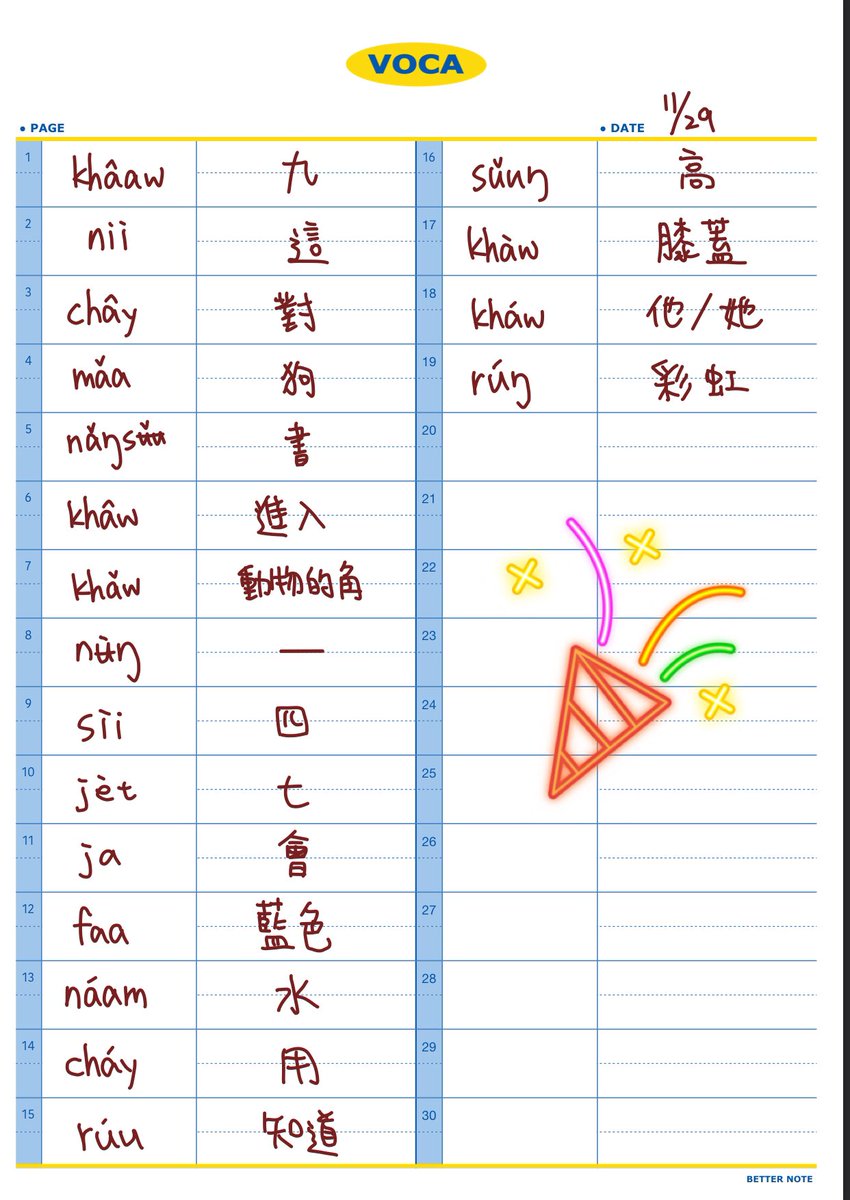 VOCA
• PAGE
• DATE 11/29
1 khâaw 九
2 nii 這
3 chây 對
4 mǎa 狗
5 nǎŋsʉ̌ʉ 書
6 khâw 進入
7 khǎw 動物的角
8 nʉ̀ŋ 一
9 sìi 四
10 jèt 七
11 ja 會
12 faa 藍色
13 náam 水
14 cháy 用
15 rúu 知道
16 sǔuŋ 高
17 khàw 膝蓋
18 kháw 他/她
19 rúŋ 彩虹
20
21
22
23
24
25
26
27
28
29
30
BETTER NOTE